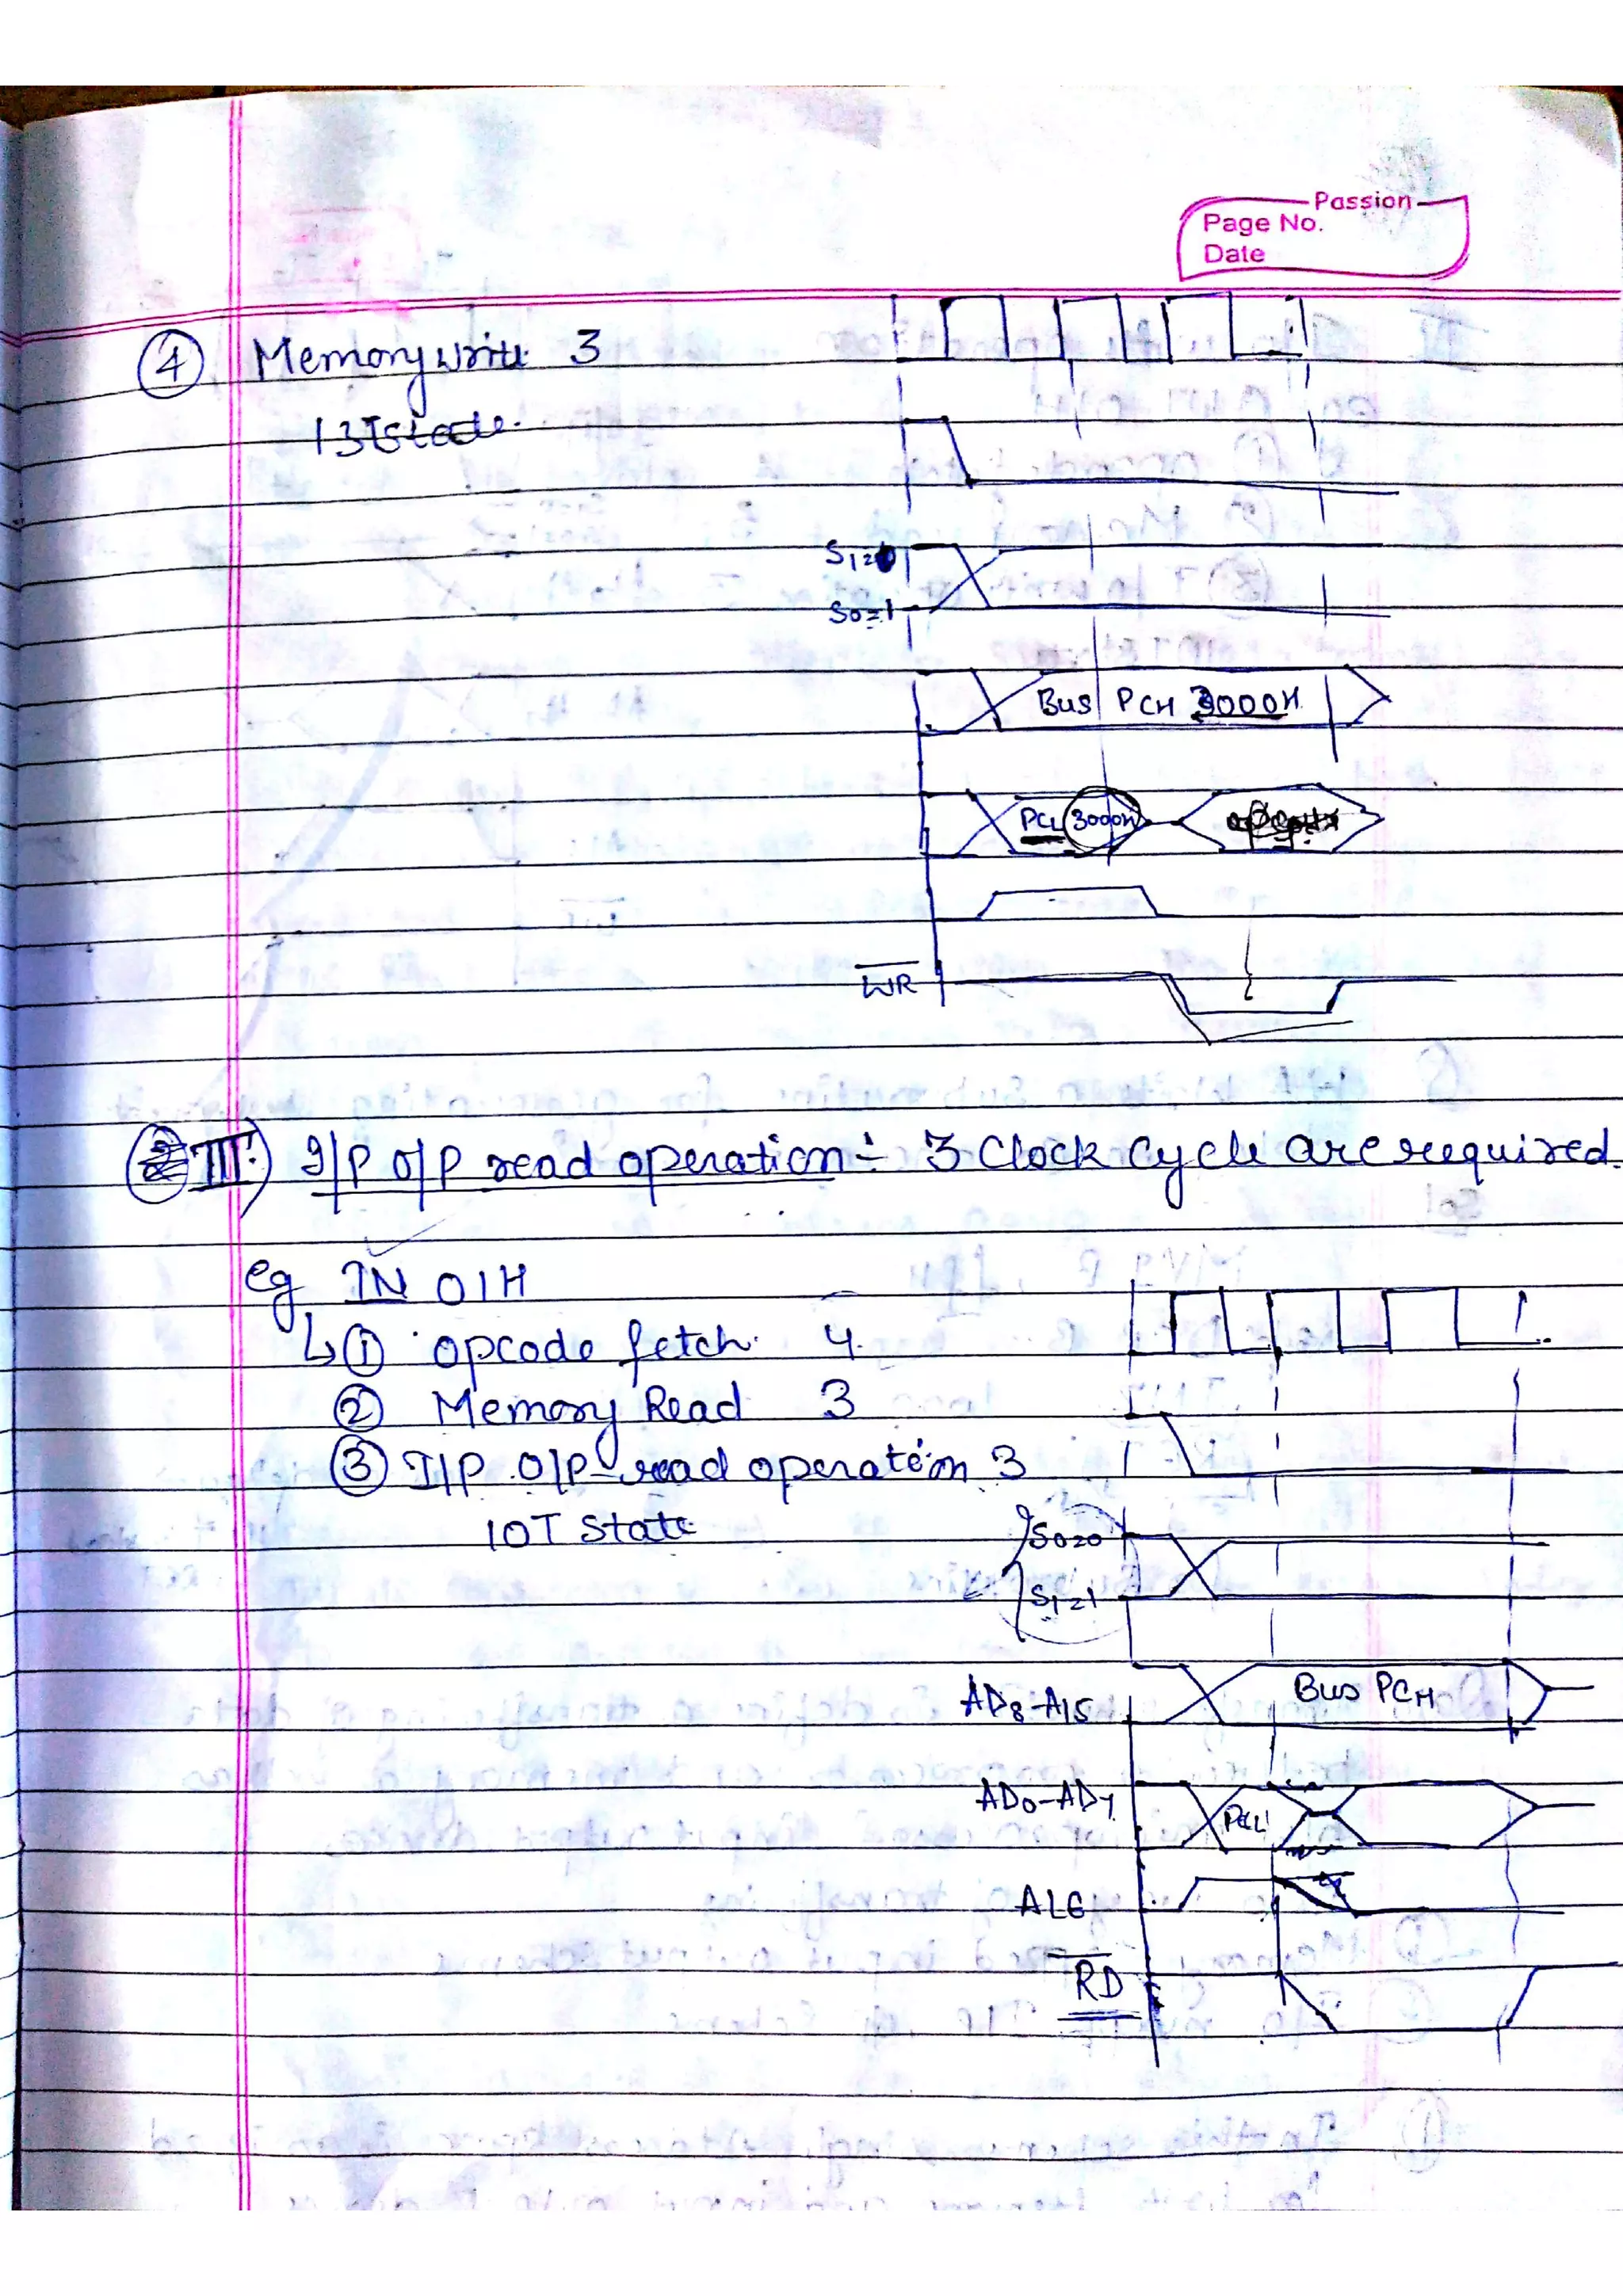 Passion
Page No.
Date
④ Memory write 3
13T State.
S1=0
S0=1
Bus PCH 3000H
PCL 3000H
WR
III) I/P O/P read operation :- 3 Clock Cycle are required.
eg IN 01H
↳ ① opcode fetch. 4.
② Memory Read 3
③ I/P O/P read operation 3
10T State
S0=0
S1=1
AD8-A15
Bus PCH
AD0-AD7
PCL
ALE
RD